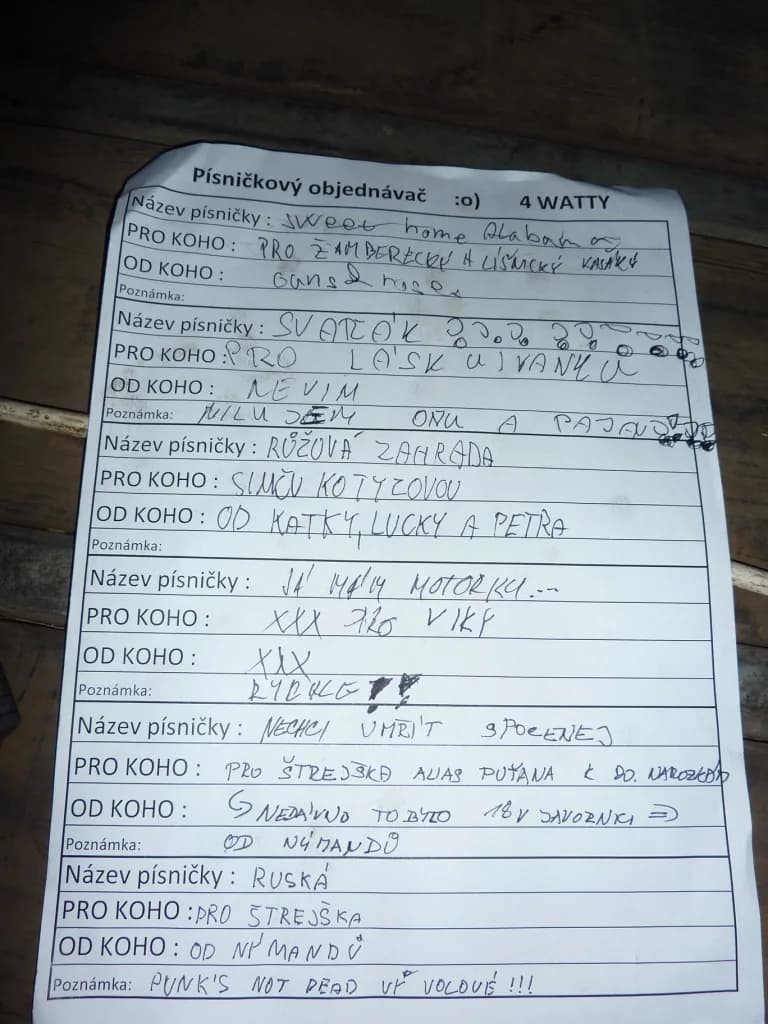 Písničkový objednávač :o) 4 WATTY
Název písničky : sweet home Alabama
PRO KOHO : PRO ŽAMBERECKÝ A LÍŠNICKÝ
OD KOHO : Guns & roses
Poznámka:
Název písničky : SVAŘÁK
PRO KOHO : PRO LÁSKU IVANKU
OD KOHO : NEVIM
Poznámka: MILUJEM A
Název písničky : RŮŽOVÁ ZAHRADA
PRO KOHO : SIMČU KOTYZOVOU
OD KOHO : OD KATKY, LUCKY A PETRA
Poznámka:
Název písničky : JÁ MÁM MOTORKU...
PRO KOHO : XXX PRO VIKY
OD KOHO : XXX
Poznámka: RYCHLE !!
Název písničky : NECHCI UMŘÍT SPOCENEJ
PRO KOHO : PRO ŠTREJŠKA ALIAS PUŤANA K 20. NAROZKÁM
OD KOHO : NEDÁVNO TO BYLO 18 V JAVORNICI =)
Poznámka: OD NÝMANDŮ
Název písničky : RUSKÁ
PRO KOHO : PRO ŠTREJŠKA
OD KOHO : OD NÝMANDŮ
Poznámka: PUNK'S NOT DEAD VY VOLOVÉ !!!